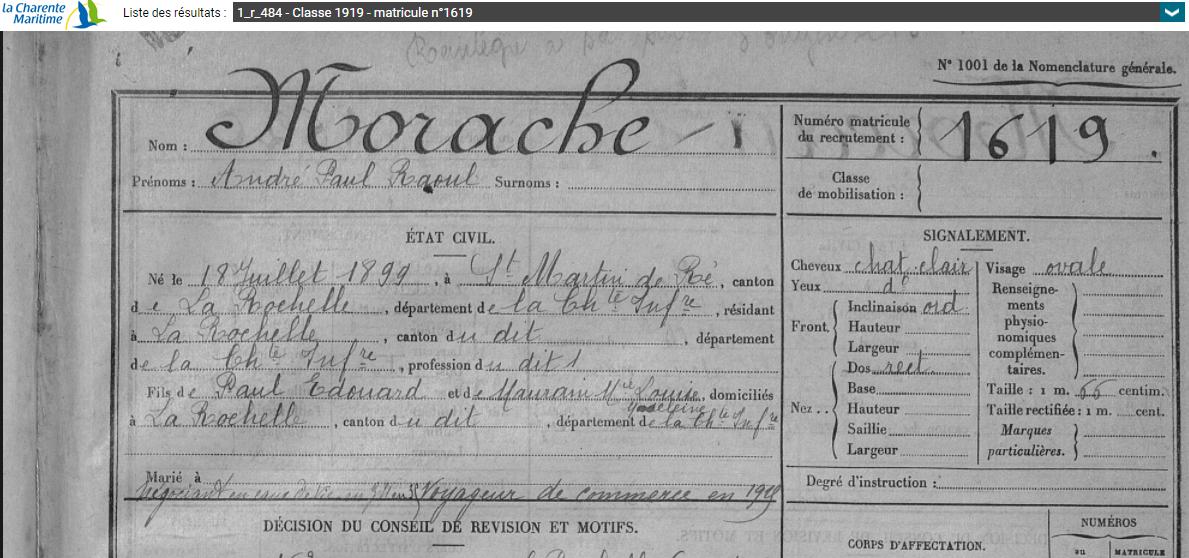 la Charente
Maritime
Liste des résultats : 1_r_484 - Classe 1919 - matricule n°1619
N° 1001 de la Nomenclature générale.
Nom : Morache
Prénoms : André Paul Raoul Surnoms :
Numéro matricule
du recrutement : 1619.
Classe
de mobilisation :
ÉTAT CIVIL.
Né le 18 Juillet 1899, à St Martin de Ré, canton
de La Rochelle, département de la Chte Infre, résidant
à La Rochelle, canton du dit, département
de la Chte Infre, profession du dit
Fils de Paul Edouard et de Maurain Mie Louise, domiciliés
Madeleine
à La Rochelle, canton du dit, département de la Chte Infre
Marié à
Négociant en Voyageur de commerce en 1929
DÉCISION DU CONSEIL DE REVISION ET MOTIFS.
SIGNALEMENT.
Cheveux chat clair
Yeux do
Front.
Inclinaison ord
Hauteur
Largeur
Nez..
Dos rect
Base
Hauteur
Saillie
Largeur
Visage ovale
Renseigne-
ments
physio-
nomiques
complémen-
taires.
Taille : 1 m. 66 centim.
Taille rectifiée : 1 m. cent.
Marques
particulières.
Degré d'instruction :
CORPS D'AFFECTATION.
NUMÉROS
au
MATRICULE